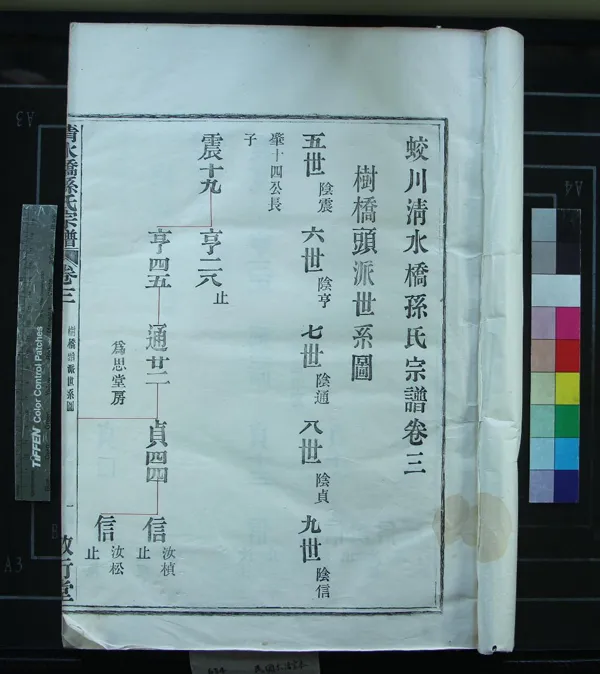 蛟川清水橋孫氏宗譜卷三
樹橋頭派世系圖
五世 陰震
六世 陰亨
七世 陰通
八世 陰貞
九世 陰信
肇十四公長
子
震十九
亨二六 止
亨四五
通廿二
為思堂房
貞四四
信 汝楨
止
信 汝松
止
清水橋孫氏宗譜 卷三
樹橋頭派世系圖
一
敦行堂
TIFFEN Color Control Patches
A3
A4
A3